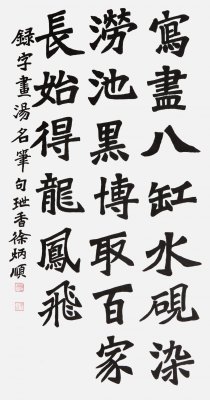 寫盡八缸水硯染
澇池黑博取百家
長始得龍鳳飛
録字畫湯名筆句玭香徐炳順